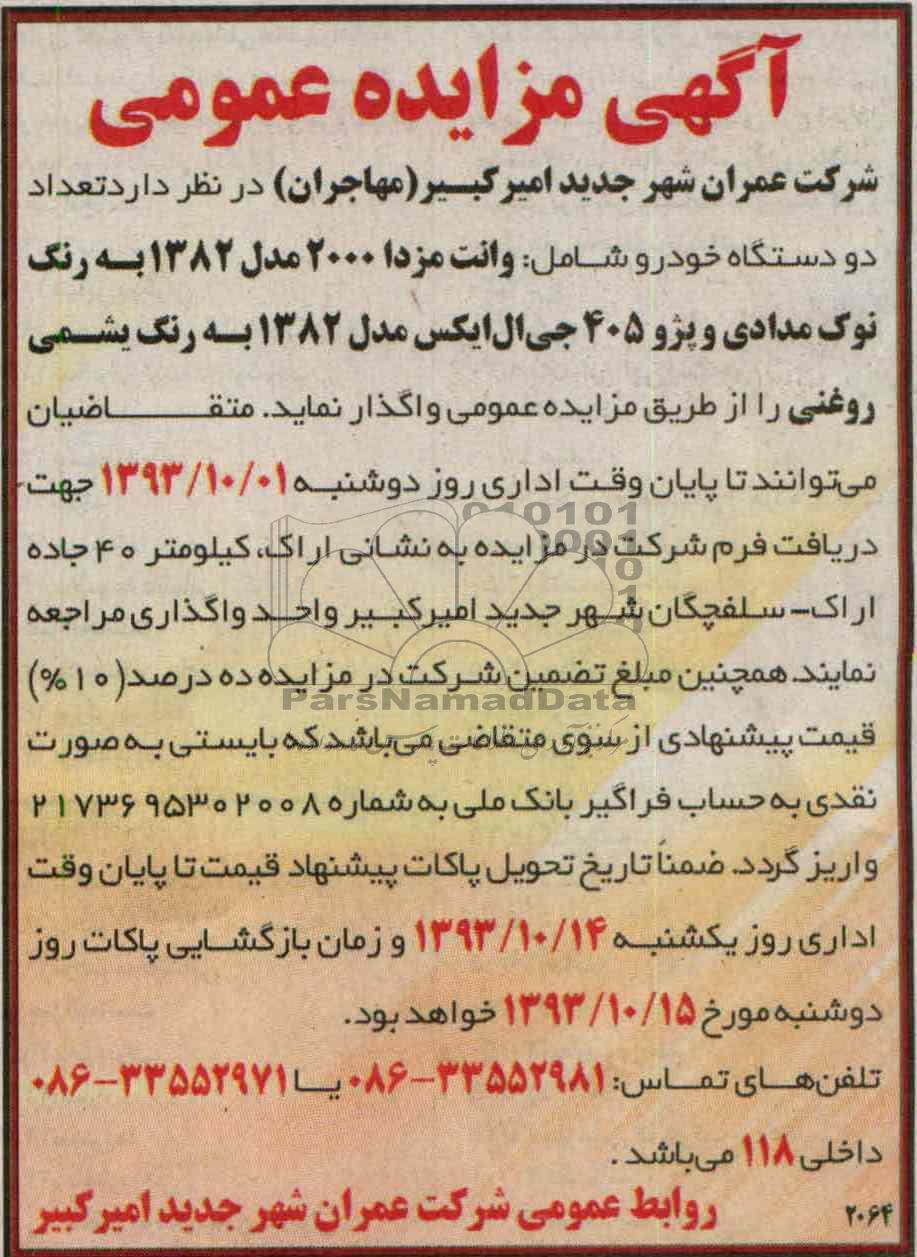 آگهی مزایده عمومی
شرکت عمران شهر جدید امیرکبیر(مهاجران) در نظر داردتعداد
دو دستگاه خودرو شامل: وانت مزدا ۲۰۰۰ مدل ۱۳۸۲ به رنگ
نوک مدادی و پژو ۴۰۵ جی‌ال‌ایکس مدل ۱۳۸۲ به رنگ یشمی
روغنی را از طریق مزایده عمومی واگذار نماید. متقاضیان
می‌توانند تا پایان وقت اداری روز دوشنبه ۱۳۹۳/۱۰/۰۱ جهت
دریافت فرم شرکت در مزایده به نشانی اراک، کیلومتر ۴۰ جاده
اراک- سلفچگان شهر جدید امیرکبیر واحد واگذاری مراجعه
نمایند. همچنین مبلغ تضمین شرکت در مزایده ده درصد(۱۰%)
قیمت پیشنهادی از سوی متقاضی می‌باشد که بایستی به صورت
نقدی به حساب فراگیر بانک ملی به شماره ۲۱۷۳۶۹۵۳۰۲۰۰۸
واریز گردد. ضمناً تاریخ تحویل پاکات پیشنهاد قیمت تا پایان وقت
اداری روز یکشنبه ۱۳۹۳/۱۰/۱۴ و زمان بازگشایی پاکات روز
دوشنبه مورخ ۱۳۹۳/۱۰/۱۵ خواهد بود.
تلفن‌های تماس: ۳۳۵۵۲۹۸۱-۰۸۶ یا ۳۳۵۵۲۹۷۱-۰۸۶
داخلی ۱۱۸ می‌باشد.
روابط عمومی شرکت عمران شهر جدید امیرکبیر
۲۰۶۴
ParsNamadData